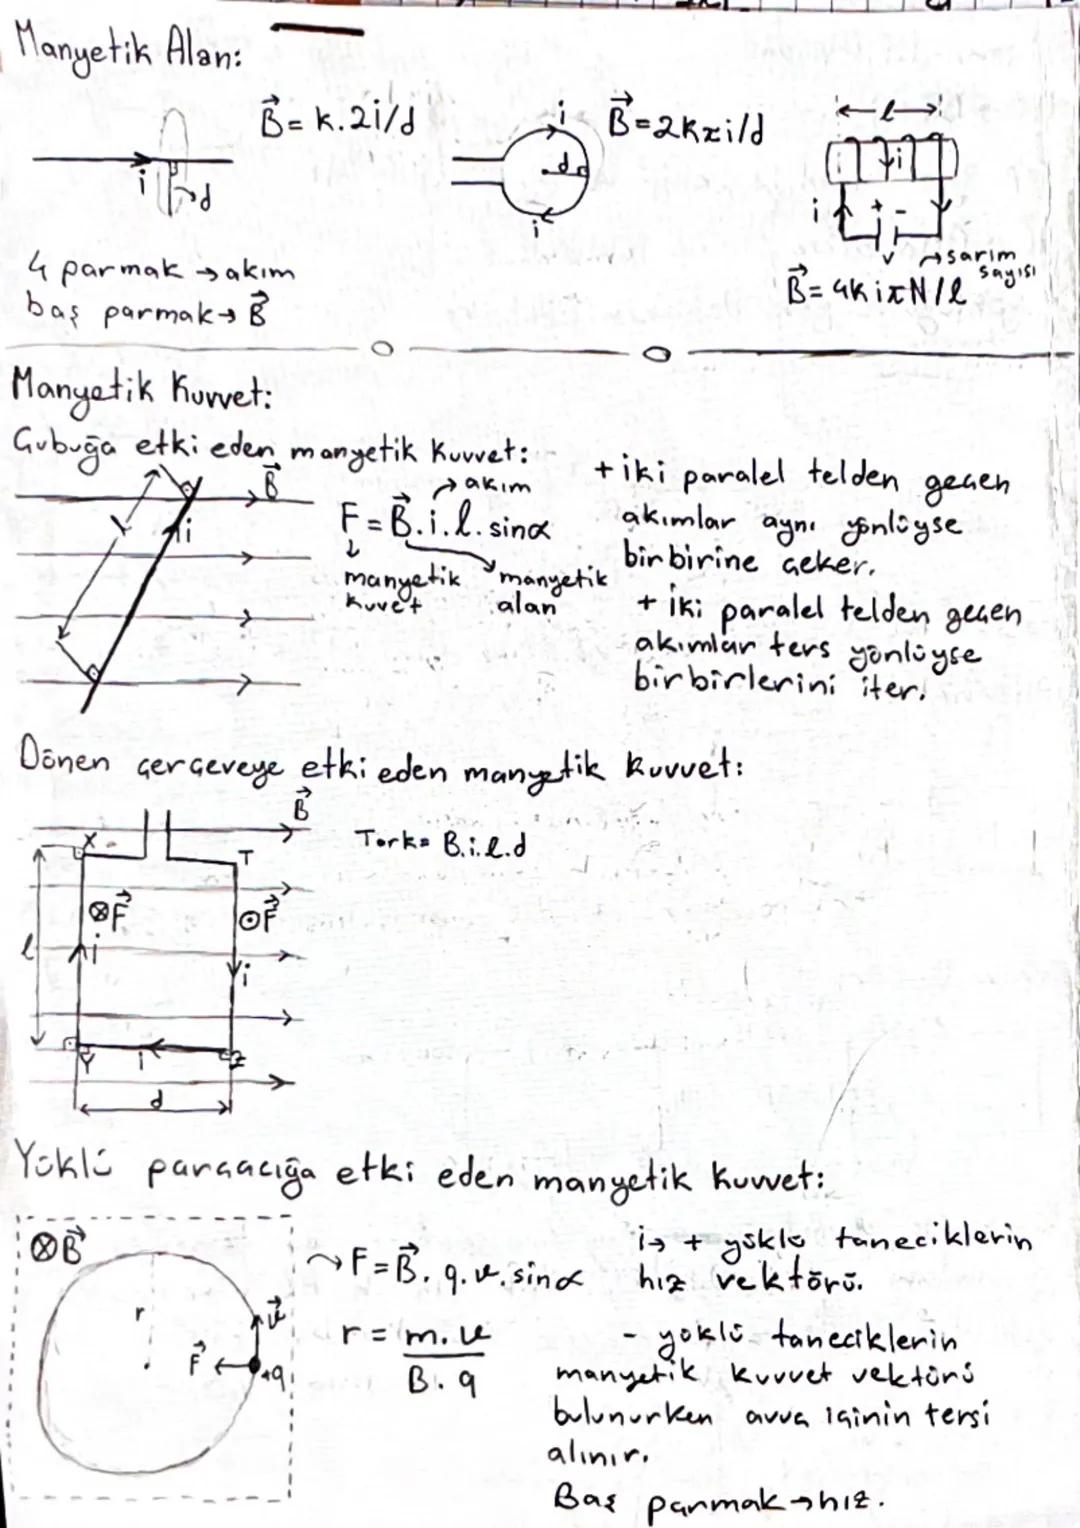 Manyetik Alan:
B⃗ = k.2i/d
i
d
i
d
i
B⃗=2kπi/d
l
i
i
+ -
V
sarım
sayısı
B⃗= 4kiπN/l
4 parmak → akım
baş parmak → B⃗
Manyetik Kuvvet:
Çubuğa etki eden manyetik kuvvet:
B⃗
i
akım
F = B⃗.i.l.sinα
manyetik
kuvvet
manyetik
alan
+ iki paralel telden geçen
akımlar aynı yönlüyse
birbirine çeker.
+ iki paralel telden geçen
akımlar ters yönlüyse
birbirlerini iter.
Dönen çerçeveye etki eden manyetik kuvvet:
B⃗
Tork= B.i.l.d
X
T
⊗F⃗
⊙F⃗
l
i
i
Y
i
Z
d
Yüklü parçacığa etki eden manyetik kuvvet:
⊗B⃗
r
v⃗
F⃗
+q
F = B⃗.q.v.sinα
r = m.v
B.q
i→ + yüklü taneciklerin
hız vektörü.
- yüklü taneciklerin
manyetik kuvvet vektörü
bulunurken avuç içinin tersi
alınır.
Baş parmak → hız.